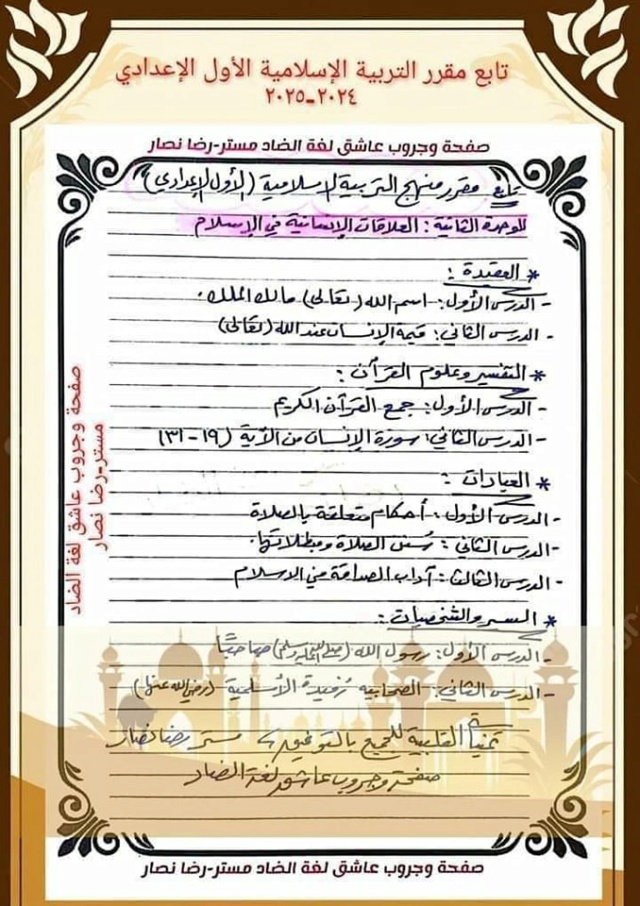 تابع مقرر التربية الإسلامية الأول الإعدادي
٢٠٢٤-٢٠٢٥
صفحة وجروب عاشق لغة الضاد مستر-رضا نصار
تابع مقرر منهج التربية الإسلامية (الأول الإعدادى)
الوحدة الثانية: العلاقات الإنسانية في الإسلام
* العقيدة:
- الدرس الأول: اسم الله (تعالى) مالك الملك.
- الدرس الثاني: قيمة الإنسان عند الله (تعالى)
* التفسير وعلوم القرآن:
- الدرس الأول: جمع القرآن الكريم
- الدرس الثاني: سورة الإنسان من الآية (١٩-٣١)
* العبادات:
- الدرس الأول: أحكام متعلقة بالصلاة
- الدرس الثاني: سُنن الصلاة ومبطلاتها.
- الدرس الثالث: آداب الصداقة في الاسلام
* السير والشخصيات:
- الدرس الأول: رسول الله (صلى الله عليه وسلم) صاحبًا
- الدرس الثاني: الصحابية رُفيدة الأسلمية (رضي الله عنها)
القلبية للجميع بالتوفيق، مستر رضا نصار
صفحة وجروب عاشق لغة الضاد
صفحة وجروب عاشق لغة الضاد مستر-رضا نصار
صفحة وجروب عاشق لغة الضاد
مستر-رضا نصار